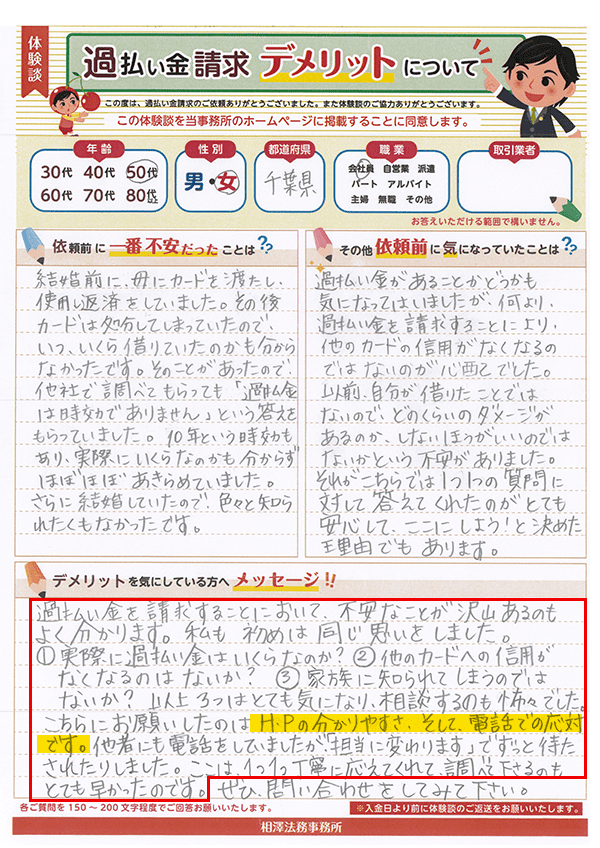 体験談
過払い金請求 デメリットについて
この度は、過払い金請求のご依頼ありがとうございました。また体験談のご協力ありがとうございます。
この体験談を当事務所のホームページに掲載することに同意します。
年齢
30代 40代 50代
60代 70代 80代以上
性別
男・女
都道府県
千葉県
職業
会社員 自営業 派遣
パート アルバイト
主婦 無職 その他
取引業者
お答えいただける範囲で構いません。
依頼前に一番不安だったことは??
結婚前に、母にカードを渡たし、
使用し返済をしていました。その後
カードは処分してしまっていたので、
いつ、いくら借りていたのかも分から
なかったです。そのことがあったので、
他社で調べてもらっても「過払金
は時効でありません」という答えを
もらっていました。10年という時効も
あり、実際にいくらなのかも分からず
ほぼほぼあきらめていました。
さらに結婚していたので、色々と知ら
れたくもなかったです。
その他依頼前に気になっていたことは??
過払い金があることかどうかも
気になってはいましたが、何より、
過払い金を請求することにより、
他のカードの信用がなくなるの
ではないのが心配でした。
以前、自分が借りたことでは
ないので、どのくらいのダメージが
あるのか、しないほうがいいのでは
ないかという不安がありました。
それがこちらでは1つ1つの質問に
対して答えてくれたのがとても
安心して、ここにしよう!と決めた
理由でもあります。
デメリットを気にしている方へメッセージ!!
過払い金を請求することにおいて、不安なことが沢山あるのも
よく分かります。私も初めは同じ思いをしました。
①実際に過払い金はいくらなのか?②他のカードへの信用が
なくなるのはないか?③家族に知られてしまうのでは
ないか?以上3つはとても気になり、相談するのも怖々でした。
こちらにお願いしたのはH・Pの分かりやすさ、そして、電話での応対
です。他者にも電話をしていましたが「担当に変わります」でずっと待た
されたりしました。ここは、1つ1つ丁寧に応えてくれて、調べ下さるのも
とても早かったのです。ぜひ、問い合わせをしてみて下さい。
各ご質問を150～200文字程度でご回答お願いいたします。
※入金日より前に体験談のご返送をお願いいたします。
相澤法務事務所